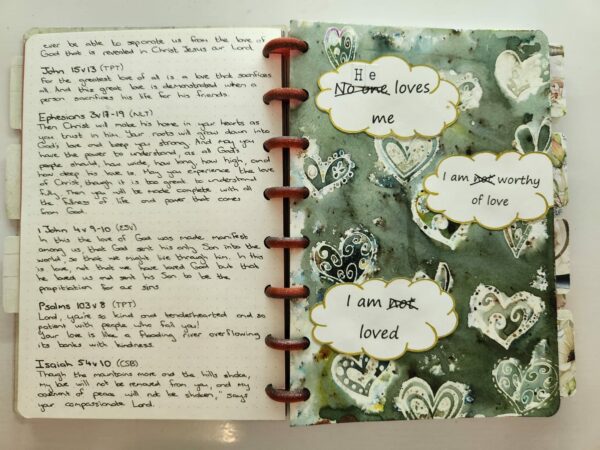 ever be able to separate us from the love of
God that is revealed in Christ Jesus our Lord.
John 15v13 (TPT)
For the greatest love of all is a love that sacrifices
all. And this great love is demonstrated when a
person sacrifices his life for his friends.
Ephesians 3v17-19 (NLT)
Then Christ will make his home in your hearts as
you trust in him. Your roots will grow down into
God's love and keep you strong. And may you
have the power to understand, as all God's
people should, how wide, how long, how high, and
how deep his love is. May you experience the love
of Christ, though it is too great to understand
fully. Then you will be made complete with all
the fullness of life and power that comes
from God.
1 John 4v9-10 (ESV)
In this the love of God was made manifest
among us, that God sent his only Son into the
world, so that we might live through him. In this
is love, not that we have loved God but that
he loved us and sent his Son to be the
propitiation for our sins.
Psalms 103v8 (TPT)
Lord, you're so kind and tenderhearted and so
patient with people who fail you!
Your love is like a flooding river overflowing
its banks with kindness.
Isaiah 54v10 (CSB)
Though the mountains move and the hills shake,
my love will not be removed from you, and my
covenant of peace will not be shaken," says
your compassionate Lord.
He
No one loves
me
I am not worthy
of love
I am not
loved